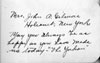 Mrs. John A. Gilmour
Holcomb, New York
May you always be as
happy as you have made
me today!